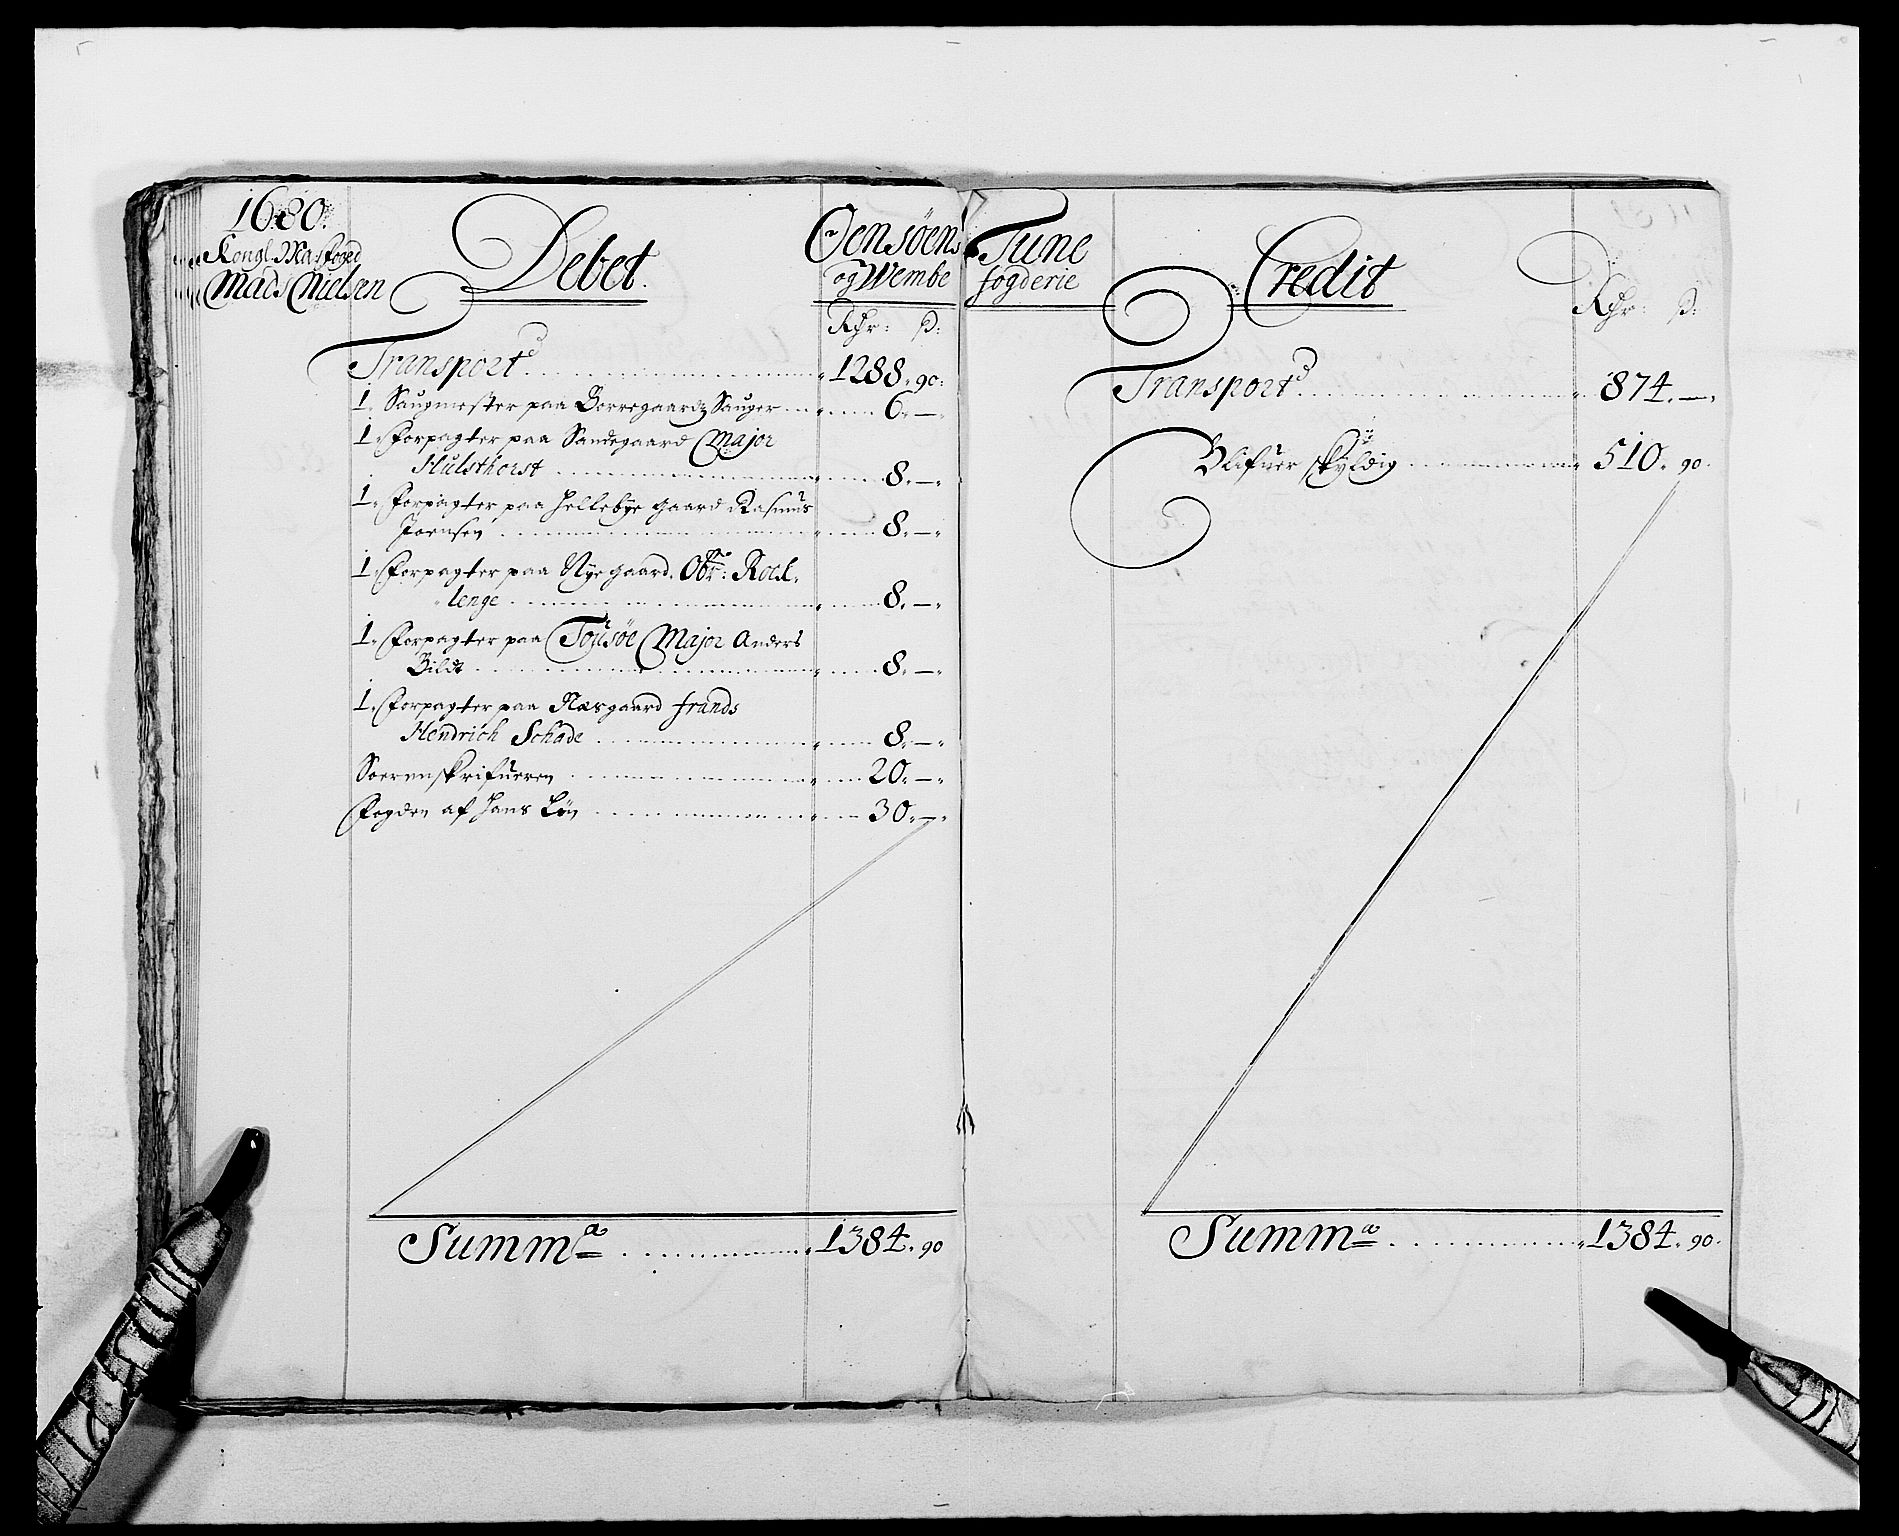 1680.
Kongl. Mas foged
Mads Nielsen
Debet.
Oensøens
og Wembe
Rdr: ß:
Transportd 1288. 90:
1. Saugmester paa Borregaardz Sauger 6. —.
1. Forpagter paa Sandegaard Major
Hulsthorst 8. —.
1. Forpagter paa Hellebye gaard Rasmus
Joensen 8. —.
1. Forpagter paa Nyegaard. Obr:
lenge 8. —.
1. Forpagter paa Tousøe Major Anders
Bilde 8. —.
1. Forpagter paa Næsgaard frands
Hendrich Schade 8. —.
Soerenskrifueren 20. —.
Fogden af Hans Løn 30. —.
Summa 1384. 90
Tune
fogderie
Credit
Rdr: ß:
Transportd 874. —.
Blifuer skyldig 510. 90.
Summa 1384. 90.